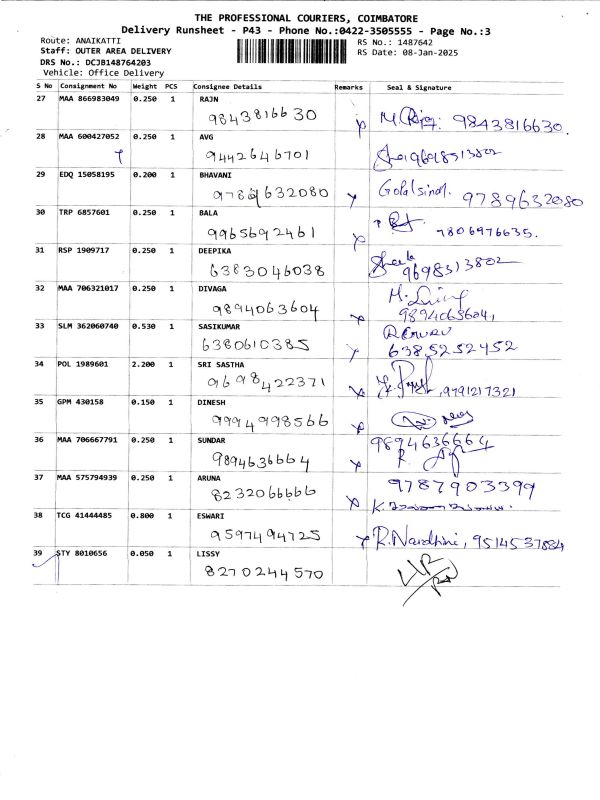 THE PROFESSIONAL COURIERS, COIMBATORE
Delivery Runsheet - P43 - Phone No.:0422-3505555 - Page No.:3
Route: ANAIKATTI
RS No.: 1487642
Staff: OUTER AREA DELIVERY
RS Date: 08-Jan-2025
DRS No.: DCJB148764203
Vehicle: Office Delivery
S No Consignment No Weight PCS Consignee Details Remarks Seal & Signature
27 MAA 866983049 0.250 1 RAJN
9843816630 9843816630.
28 MAA 600427052 0.250 1 AVG
9442646701 9698513802
29 EDQ 15058195 0.200 1 BHAVANI
9789632080 9789632080
30 TRP 6857601 0.250 1 BALA
9965692461 7806976635.
31 RSP 1909717 0.250 1 DEEPIKA
6383046038 9698513802
32 MAA 706321017 0.250 1 DIVAGA
9894063604 9894063604,
33 SLM 362060740 0.530 1 SASIKUMAR
6380610385 6385252452
34 POL 1989601 2.200 1 SRI SASTHA
9698422371 ,9791217321
35 GPM 430158 0.150 1 DINESH
9994998566
36 MAA 706667791 0.250 1 SUNDAR
9894636664 9894636664
37 MAA 575794939 0.250 1 ARUNA
8232066666 9787903399
38 TCG 41444485 0.800 1 ESWARI
9597494725 R.Nandhini, 9514537884
39 STY 8010656 0.050 1 LISSY
8270244570